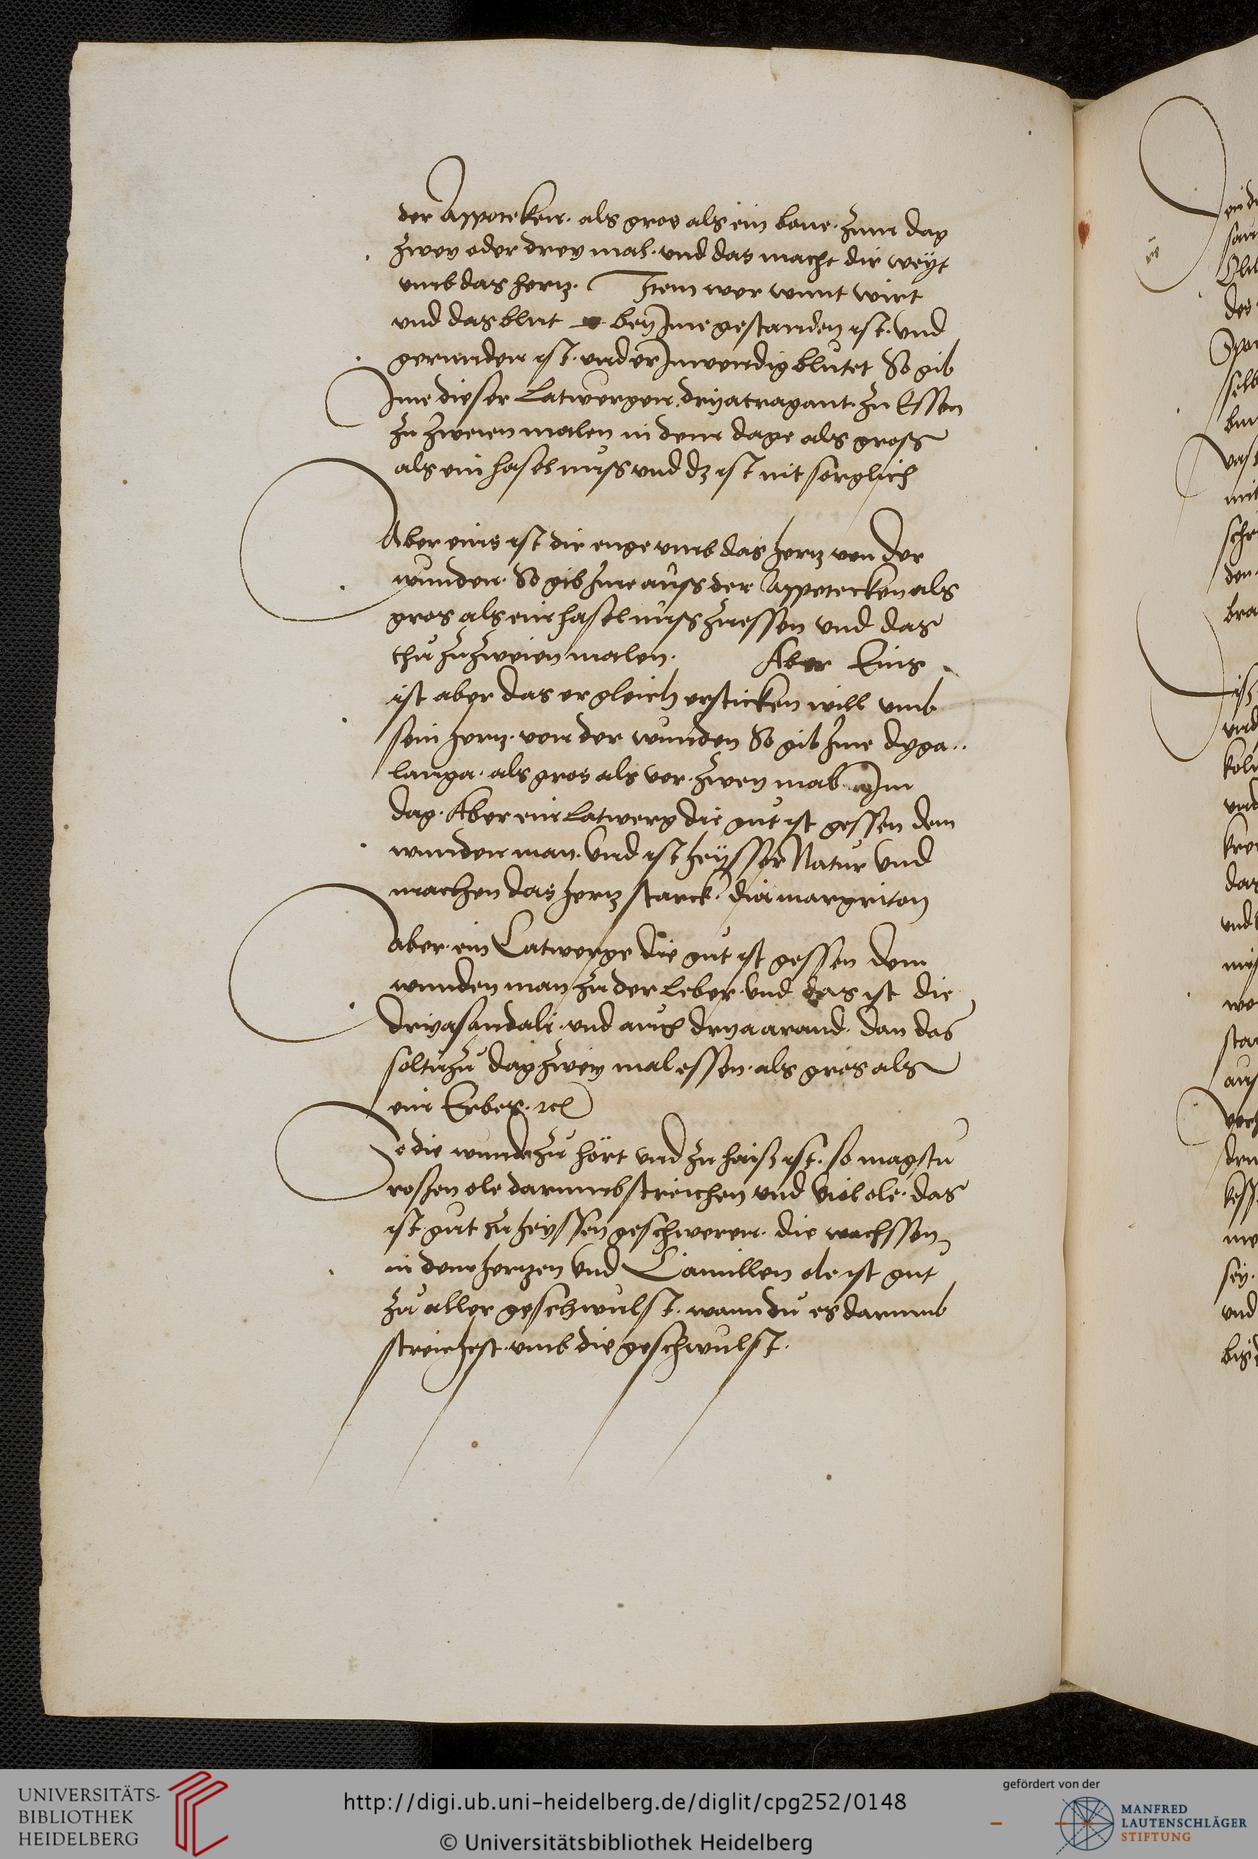 der Appoteken. als gros als ein bone. zum dag
zwey oder drey mal. und das macht dir weyt
umb das hertz. Item wer wunt wirt
und das blut bey Ime gestanden ist. und
gerunnden ist. und er Inwendig blutet So gib
Ime dieser Latwergen. dryatragant. zu Essen
zu zweien malen in dem dage als gross
als ein hasel nuss und dz ist nit sorglich
Aber eins ist die enge umb das hertz von der
wunden. So gib Ime auss der Appotecken als
gros als ein hasel nuss zu essen und das
thu zu zweien malen. Aber Eins
ist aber das er gleich ersticken will umb
sein hertz. von der wunden So gib Ime dyga..
langa. als gros als vor. zwey mal Im
dag. Aber ein Latwerg die gut ist gessen dem
wunden man. Und ist heysser Natur Und
machen das hertz starck. dia margriton
Aber ein Latwerge die gut ist gessen dem
wunden man zu der Leber. und das ist die
dryasandali. und auch dryaarand. dan das
soltu zu dag zwey mal essen. als gros als
ein Erbes.
So die wunde zu hört und zu haiss ist. so magstu
rossen ole darumb streichen und viol ole. das
ist gut zu heyssen geschweren. die wachssen
in dem hertzen Und Camillen ole ist gut
zu aller geschwulst. wann du es darumb
streichest. umb die geschwulst.
UNIVERSITÄTS-
BIBLIOTHEK
HEIDELBERG
http://digi.ub.uni-heidelberg.de/diglit/cpg252/0148
© Universitätsbibliothek Heidelberg
gefördert von der
MANFRED
LAUTENSCHLÄGER
STIFTUNG